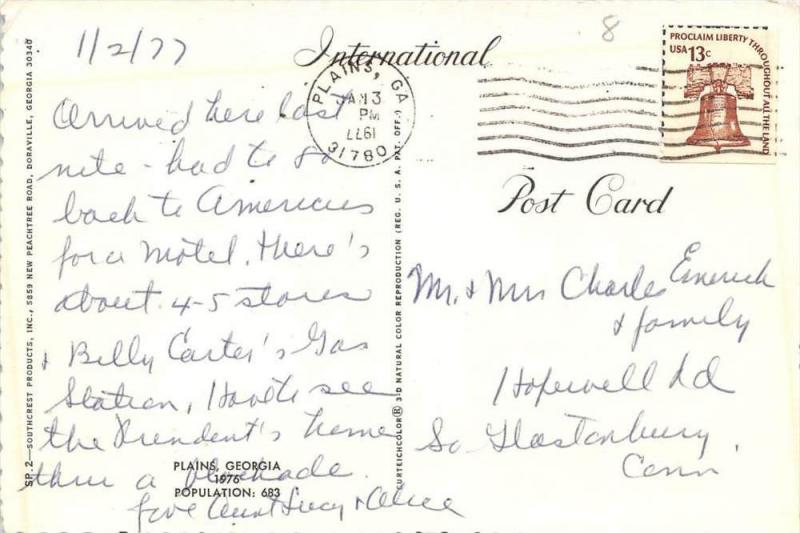 1/2/77
Arrived here last
nite - had to go
back to Americus
for a motel. There's
about 4-5 stores
& Billy Carter's Gas
Station, Had to see
the President's home
thru a blockade.
Love Aunt Lucy & Alice
PLAINS, GEORGIA
1976
POPULATION: 683
SP. 2—SOUTHCREST PRODUCTS, INC., 5859 NEW PEACHTREE ROAD, DORAVILLE, GEORGIA 30340
CURTEICHCOLOR® 3-D NATURAL COLOR REPRODUCTION (REG. U.S.A. PAT. OFF.)
International
Post Card
8
PLAINS, GA
JAN 3
PM
1977
31780
PROCLAIM LIBERTY THROUGHOUT ALL THE LAND
USA 13c
Mr. & Mrs Charles Emerick
& family
Hopewell Rd
So Glastonbury,
Conn